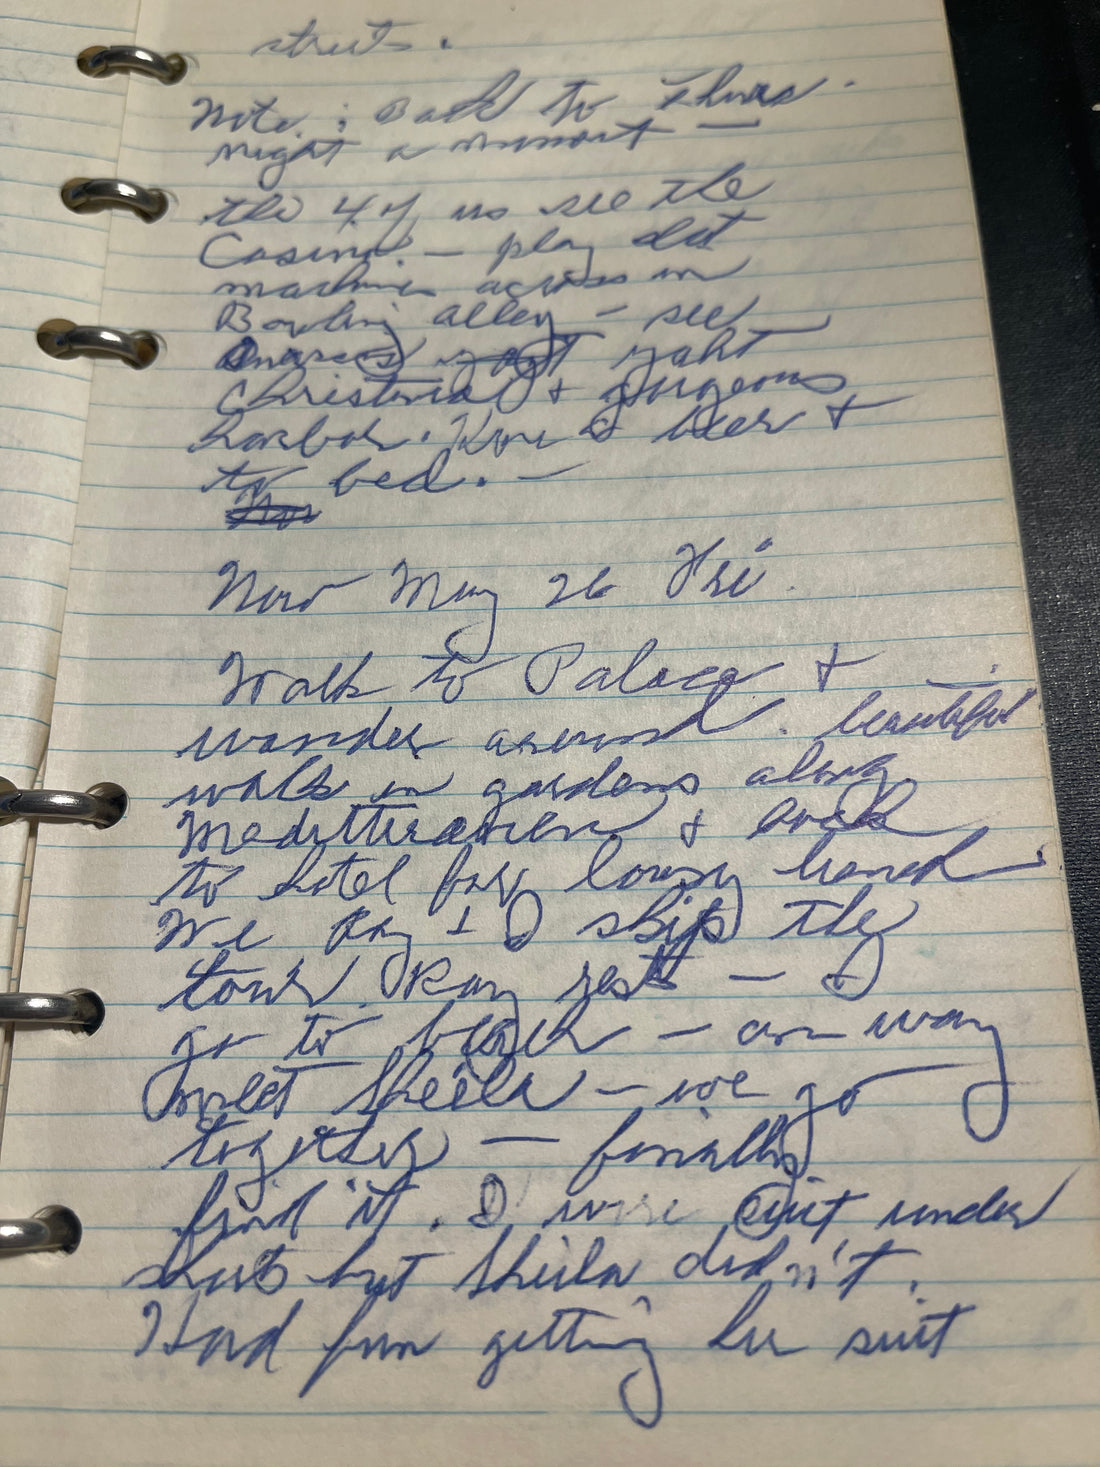 streets.
Note: Back to Thurs.
night a moment —
the 4 of us see the
Casino. — play slot
machines across in
Bowling alley — see
Onassis yaht
Christina & gorgeous
harbor. Have a beer &
to bed. —
Now May 26 Fri.
Walk to Palace &
wander around. beautiful
walk in gardens along
Meditteranean & back
to hotel for lousy lunch.
We Ray & I skip the
tour. Ray rests — & I
go to beach — on way
meet Sheila — we go
together — finially
find it. I wore suit under
shorts but Sheila didn't.
Had fun getting her suit